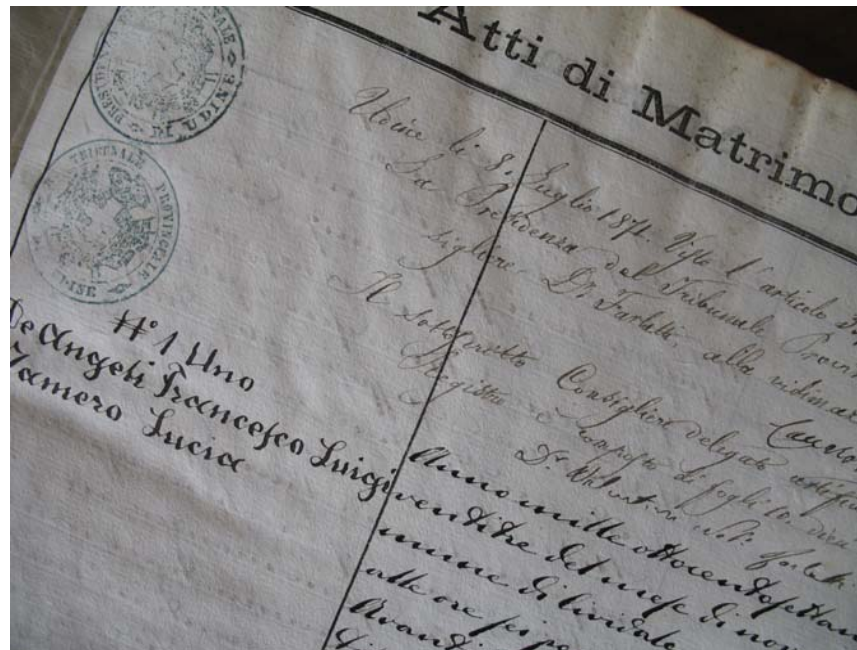 Atti di Matrimo
DI UDINE
TRIBUNALE PROVINCIALE
UDINE
Udine li 8. Luglio 1871. Visto l'articolo
La Presidenza del Tribunale Provin
sigliere Dr. Farlatti, alla vidimaz
Il sottoscritto Consigliere delegato certifica
Registro è composto di fogli 10. dieci
N° 1 Uno
De Angeli Francesco Luigi
Zamero Lucia
Anno mille ottocentosettan
ventitre del mese di nov
mune di Cividale
alle ore sei po
Avanti